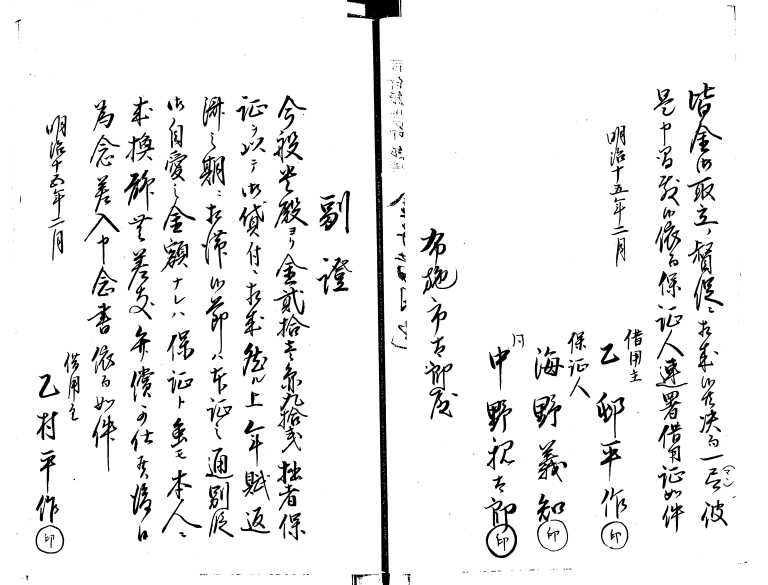 皆金御取立ノ督促ニ相成候共決而一言彼
是申間敷候依而保証人連署借用証如件
明治十五年二月
借用主
乙邨平作㊞
保証人
海野義知㊞
同
中野祝太郎㊞
布施市太郎殿
副證
今般貴殿ヨリ金貳拾壱〓九拾弐〓拙者保
証ヲ以テ御貸付ニ相成〓ル上ハ年賦返
済之期ニ相滞候節ハ本証之通別段
御自愛之金額ナレハ保証ト雖モ本人ニ
〓換聊無差支弁償可仕為後日
為念差入申念書依而如件
明治十五年二月
借用主
乙村平作㊞